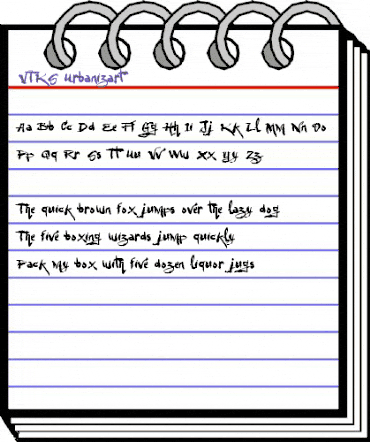 VTKS Urbanizart
Aa Bb Cc Dd Ee Ff Gg Hh Ii Jj Kk Ll Mm Nn Oo
Pp Qq Rr Ss Tt Uu Vv Ww Xx Yy Zz
The quick brown fox jumps over the lazy dog
The five boxing wizards jump quickly
Pack my box with five dozen liquor jugs